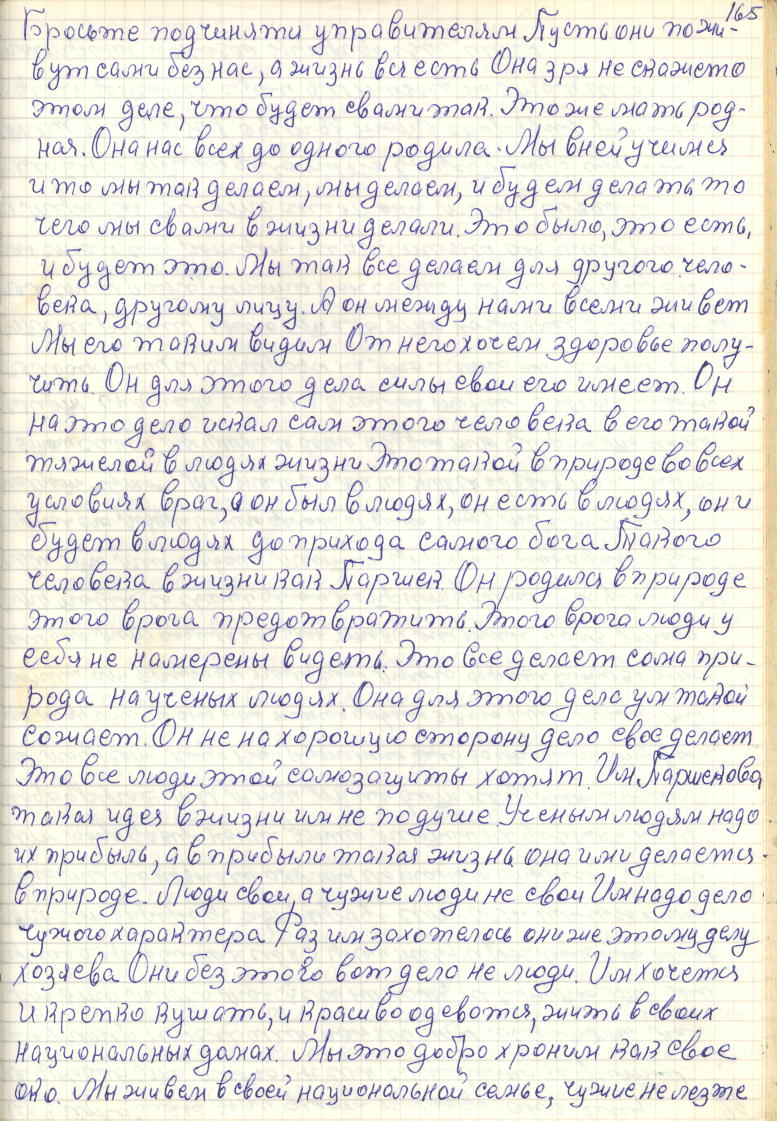 165
Бросьте подчиняти управителям Пусть они пожи-
вут сами без нас, а жизнь вся есть Она зря не скажет о
этом деле, что будет свами так. Это же мать род-
ная. Она нас всех до одного родила. Мы вней учимся
и то мы так делаем, мы делаем, и будем делать то
чего мы свами в жизни делали. Это было, это есть,
и будет это. Мы так все делаем для другого чело-
века, другому лицу. А он между нами всеми живет
Мы его таким видим От него хочем здоровье полу-
чить. Он для этого дела силы свои его имеет. Он
на это дело искал сам этого человека в его такой
тяжелой в людях жизни Это такой в природе во всех
условиях враг, а он был в людях, он есть в людях, он и
будет в людях до прихода самого бога Такого
человека в жизни как Паршек. Он родился в природе
этого врога предотвратить. Этого врога люди у
себя не намерены видеть. Это все делает сама при-
рода на ученых людях. Она для этого дела ум такой
сожает. Он не на хорошую сторону дело свое делает
Это все люди этой самозащиты хотят. Им Паршекова
такая идея в жизни им не по душе. Ученым людям надо
их прибыль, а в прибыли такая жизнь она ими делается
в природе. Люди свои, а чужие люди не свои Им надо дело
чужого характера Раз им захотелось они же этому делу
хозяева Они без этого вот дело не люди. Им хочется
и крепко кушать, и красиво одеватся, жить в своих
национальных домах. Мы это добро храним как свое
око. Мы живем в своей национальной семье, чужие не лезте